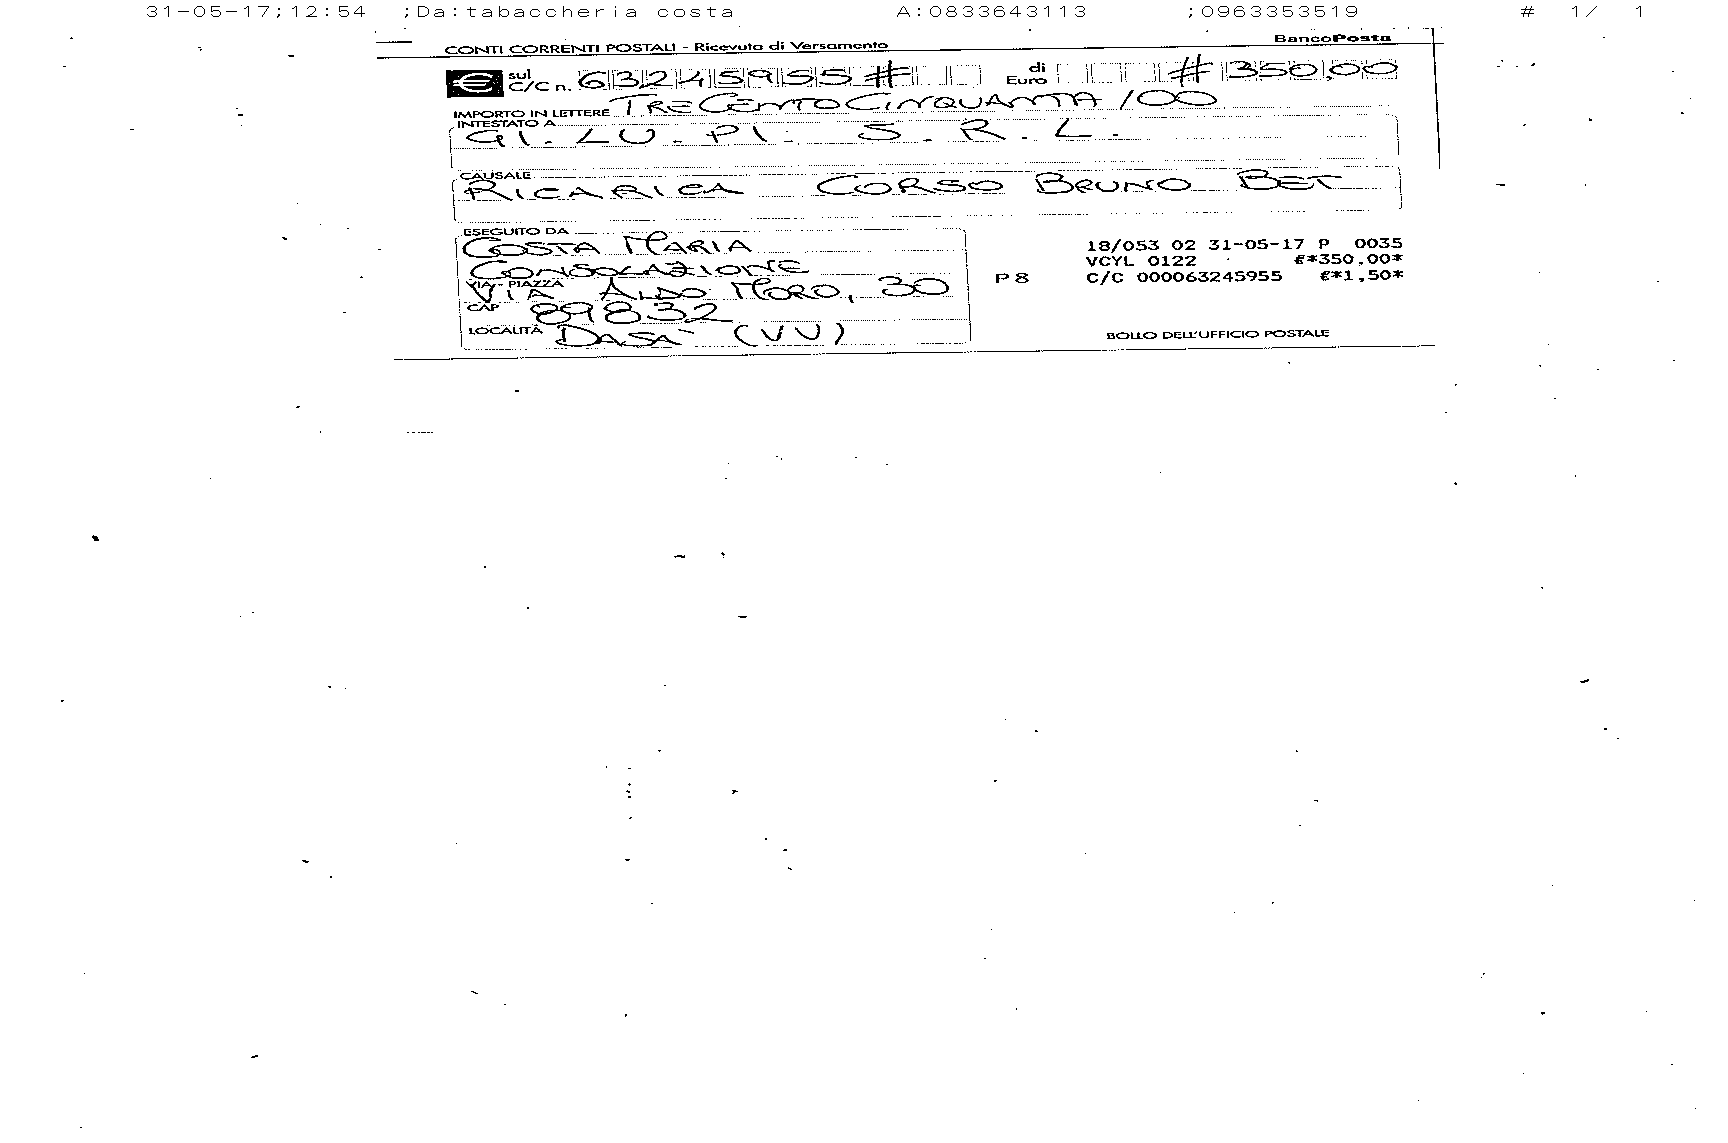 31-05-17;12:54 ;Da:tabaccheria costa A:0833643113 ;0963353519 # 1/ 1
CONTI CORRENTI POSTALI - Ricevuta di Versamento BancoPosta
€ sul C/C n. 63245955# di Euro #350,00
IMPORTO IN LETTERE TRECENTOCINQUANTA/00
INTESTATO A
GI.LU.PI. S.R.L.
CAUSALE
RICARICA CORSO BRUNO BET
ESEGUITO DA
COSTA MARIA
CONSOLAZIONE
VIA - PIAZZA
VIA ALDO MORO, 30
CAP 89832
LOCALITÀ DASA' (VV)
18/053 02 31-05-17 P 0035
VCYL 0122 €*350,00*
P 8 C/C 000063245955 €*1,50*
BOLLO DELL'UFFICIO POSTALE